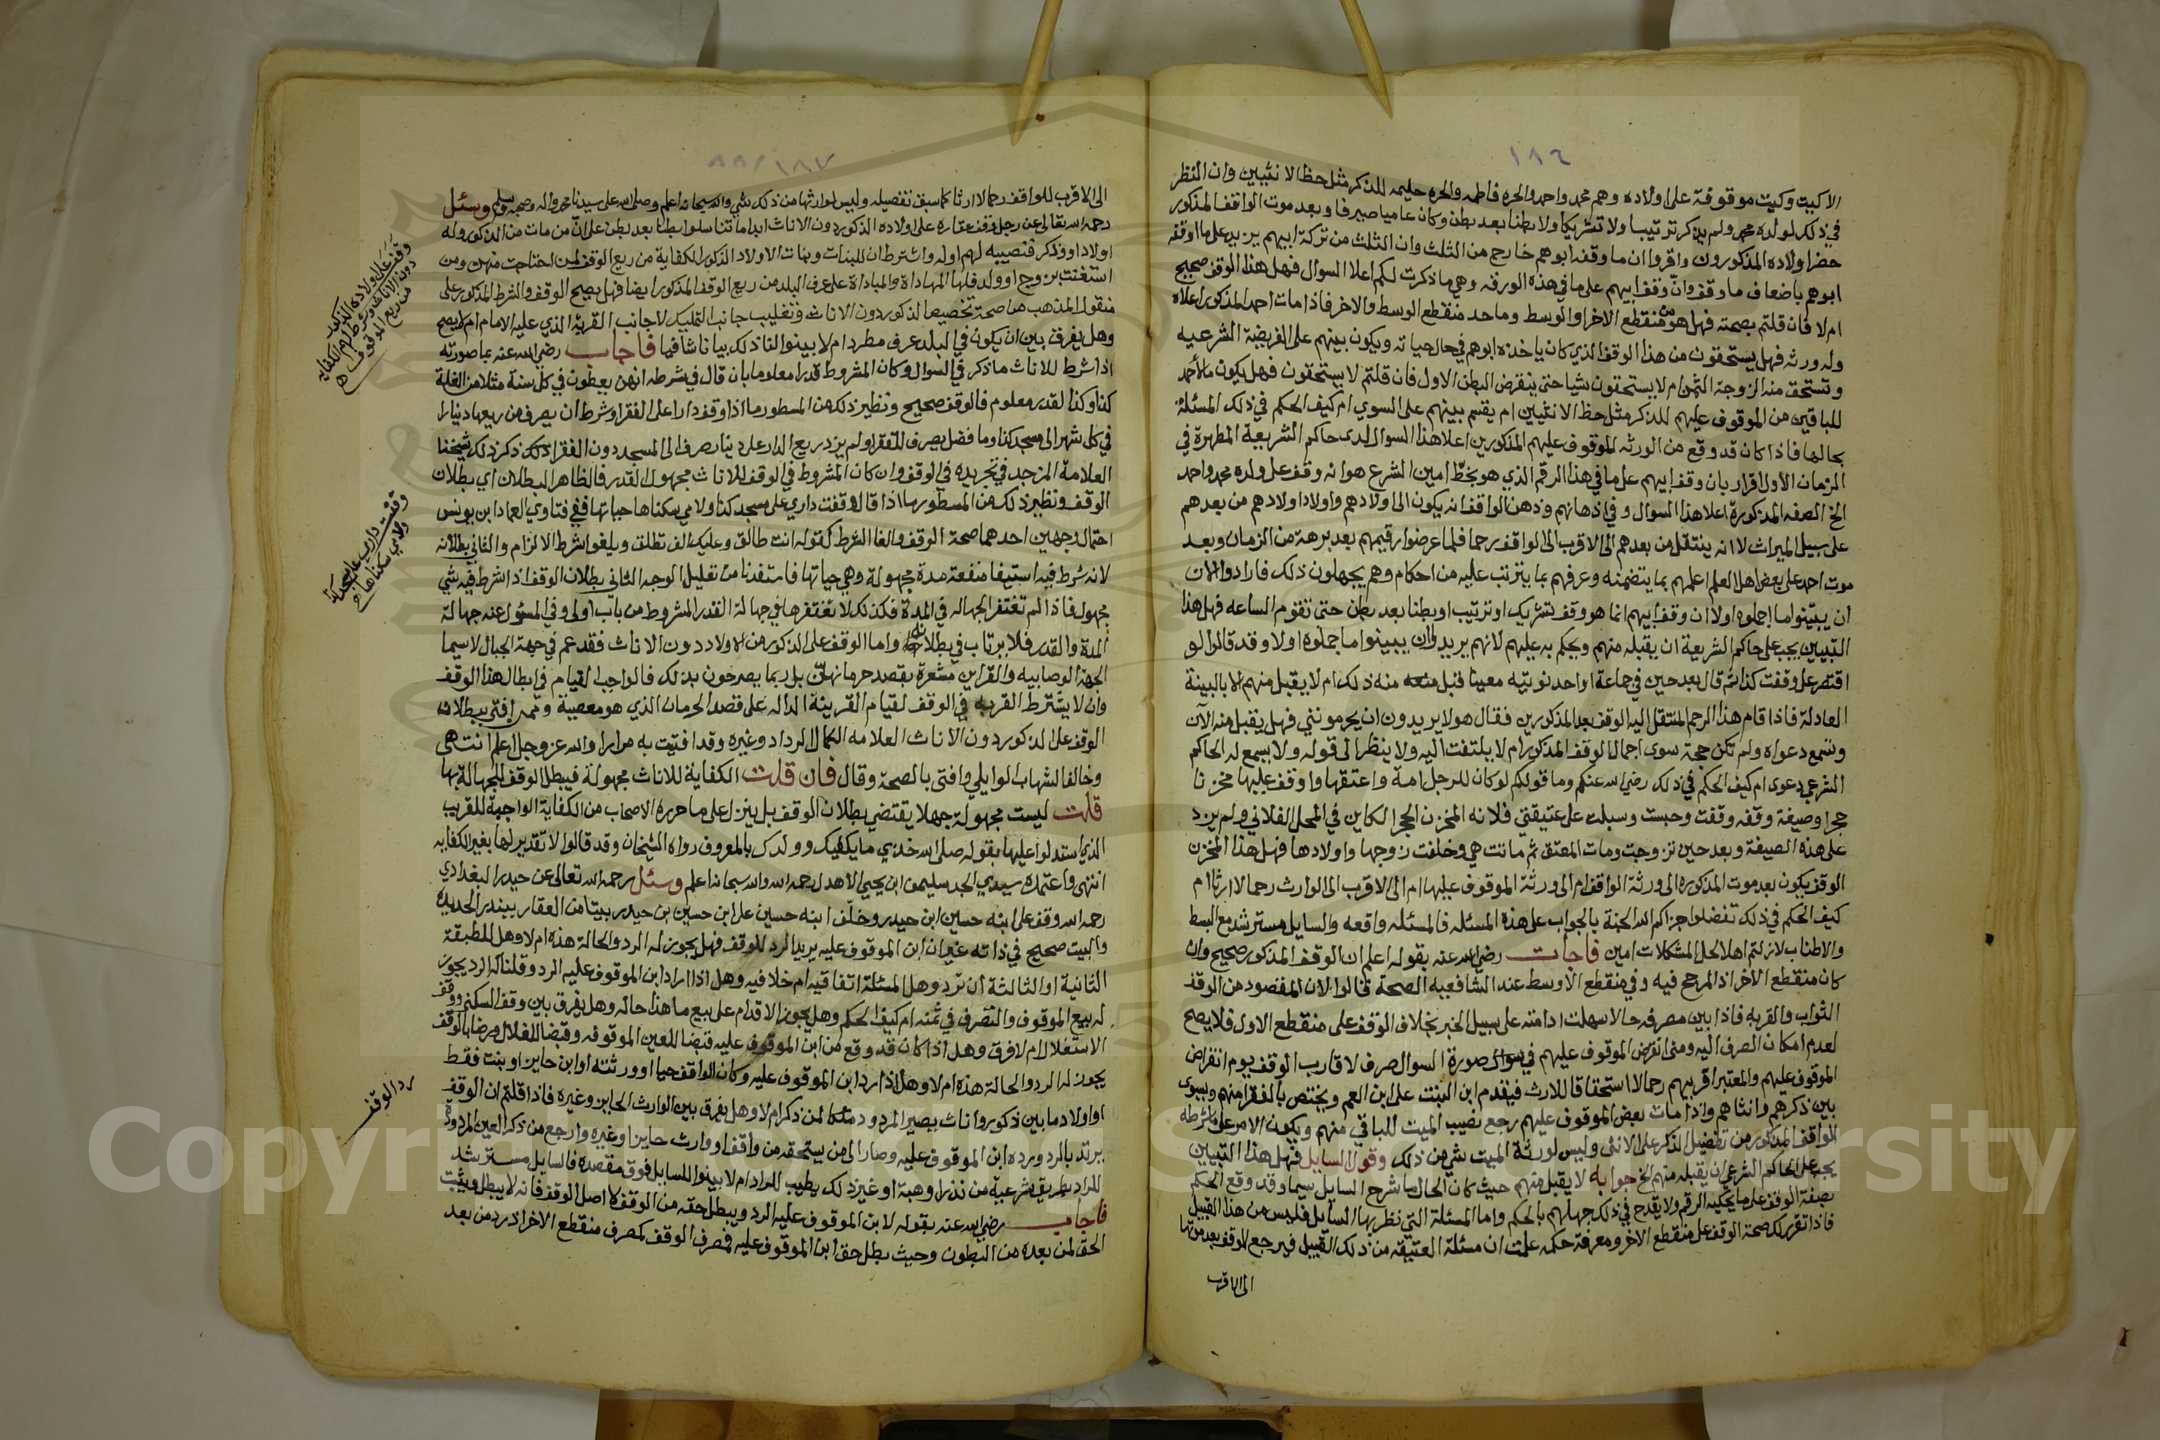 ١٨٦
الاكيت وكيت موقوفة على اولاده وهم محمد واحمد والحره فاطمه والحره حليمه للذكر مثل حظ الانثيين وان النظر
في ذلك لولده محمد ولم يذكر ترتيبا ولا تشريكا ولا بطنا بعد بطن وكان عاميا صيرفا وبعد موت الواقف المذكور
حضر اولاده المذكورون واقروا ان ما وقف ابوهم خارج من الثلث وان الثلث من تركة ابيهم يزيد على ما اوقفه
ابوهم باضعاف ما وقف وان وقف ابيهم على ما في هذه الورقه وهي ما ذكرت لكم اعلا السوال فهل هذا الوقف صحيح
ام لا فان قلتم بصحته فهل هو من منقطع الاخر او الوسط وما حد منقطع الوسط والاخر فاذا مات احد المذكور اعلاه
وله ورثه فهل يستحقون من هذا الوقف الذي كان ياخذه ابوهم في حال حياته ويكون بينهم على الفريضة الشرعيه
وتستحق منه الزوجة الثمن ام لا يستحقون شيا حتى ينقرض البطن الاول فان قلتم لا يستحقون فهل يكون ما لاحمد
للباقين من الموقوف عليهم للذكر مثل حظ الانثيين ام يقسم بينهم على السوي ام كيف الحكم في ذلك المسئلة
بحالها فاذا كان قد وقع من الورثه الموقوف عليهم المذكورين اعلا هذا السوال لدى حاكم الشريعة المطهرة في
الزمان الأول اقرار بان وقف ابيهم على ما في هذا الرقم الذي هو بخط امين الشرع هو انه وقف على ولده محمد واحمد
الخ الصفه المذكورة اعلا هذا السوال وفي اذهانهم وذهن الواقف انه يكون الى اولادهم واولاد اولادهم من بعدهم
على سبيل الميراث لا انه ينتقل من بعدهم الى الاقرب الى الواقف رحما فلما عرضوا رقيمهم بعد برهة من الزمان وبعد
موت احمد على بعض اهل العلم اعلمهم بما يتضمنه وعرفهم بما يترتب عليه من احكام وهم يجهلون ذلك فارادوا الان
ان يبينوا ما اجملوه اولا ان وقف ابيهم انما هو وقف تشريك او ترتيب او بطنا بعد بطن حتى تقوم الساعه فهل هذا
التبيين يجب على حاكم الشريعة ان يقبله منهم ويحكم به عليهم لانهم يريدون ان يبينوا ما اجملوه اولا وقد قالوا لو
اقتصر على وقفت كذا ثم قال بعد حين في جماعة او احد نويته معينا قبل منه ذلك ام لا يقبل منهم الا بالبينة
العادلة فاذا قام هذا الرحم المنتقل اليه الوقف بعد المذكورين فقال هولا يريدون ان يحرموني فهل يقبل منه الان
وتسمع دعواه ولم تكن حجة سوى اجمال الوقف المذكور ام لا يلتفت اليه ولا ينظر الى قوله ولا يسمع له الحاكم
الشرعي دعوى ام كيف الحكم في ذلك رضي الله عنكم وما قولكم لو كان للرجل امة واعتقها واوقف عليها مخزنا
حجرا وصيغة وقفه وقفت وحبست وسبلت على عتيقتي فلانه المخزن الحجر الكاين في المحل الفلاني ولم يزد
على هذه الصيغة وبعد حين تزوجت ومات المعتق ثم ماتت هي وخلفت زوجها واولادها فهل هذا المخزن
الوقف يكون بعد موت المذكوره الى ورثة الواقف ام الى ورثة الموقوف عليها ام الى الاقرب الى الوارث رحما لا ارثا ام
كيف الحكم في ذلك تفضلوا جزاكم الله الجنة بالجواب على هذة المسئله فالمسئله واقعه والسايل مسترشد مع البسط
والاطناب لازلتم اهلا لحل المشكلات امين فاجاب رضي الله عنه بقوله اعلم ان الوقف المذكور صحيح وان
كان منقطع الأخر اذ المرجح فيه وفي منقطع الاوسط عند الشافعيه الصحة قالوا لان المقصود من الوقف
الثواب والقربه فاذا بين مصرفه حالا سهلت ادامته على سبيل الخير بخلاف الوقف على منقطع الاول فلا يصح
لعدم امكان الصرف اليه ومتى انقرض الموقوف عليهم في صورة السوال صرف لاقارب الوقف يوم انقراض
الموقوف عليهم والمعتبر اقربيهم رحما لا استحقاقا للارث فيقدم ابن البنت على ابن العم ويختص بالفقرا منهم ويسوى
بين ذكرهم وانثاهم واذا مات بعض الموقوف عليهم رجع نصيب الميت للباقي منهم ويكون الامر على ما شرطه
الواقف المذكور من تفضيل الذكر على الانثى وليس لورثة الميت شي من ذلك وقول السايل فهل هذا التبيين
يجب على الحاكم الشرعي ان يقبله منهم الخ جوابه لا يقبل منهم حيث كان الحال ما شرح السايل سيما وقد وقع الحكم
بصفة الوقف على ما يحكيه الرقم ولا يقدح في ذلك جهلهم بالحكم واما المسئلة التي نظر بها السايل فليس من هذا القبيل
فاذا تقرر لك صحة الوقف على منقطع الاخر ومعرفة حكمه علمت ان مسئلة العتيقه من ذلك القبيل فيرجع الوقف بعد موتها
الى الاقرب
١٨٧
الى الاقرب للواقف رحما لا ارثا كما سبق تفصيله وليس لوارثها من ذلك شي والله سبحانه اعلم وصلى الله على سيدنا محمد واله وصحبه وسلم وسئل
رحمه الله تعالى عن رجل وقف عقاره على اولاده الذكور دون الاناث ابدا ما تناسلوا بطنا بعد بطن على ان من مات من الذكور وله
اولاد او ولد ذكر فنصيبه لهم اوله واشترط ان للبنات وبنات الاولاد الذكور الكفاية من ريع الوقف لمن احتاجت منهن ومن
استغنت بزوج او ولد فلها المهاداة والمباداة على عرف البلد من ريع الوقف المذكور ايضا فهل يصح الوقف والشرط المذكور على
منقول المذهب من صحة تخصيص الذكور دون الاناث وتغليب جانب التمليك لا جانب القربة الذي عليه الامام ام لا يصح
وهل يفرق بين ان يكون في البلد عرف مطرد ام لا بينوا لنا ذلك بيانا شافيا فاجاب رضي الله عنه بما صورته
اذا شرط للاناث ما ذكر في السوال وكان المشروط قدرا معلوما بان قال في شرطه انهن يعطون في كل سنة مثلا من الغلة
كذا وكذا لقدر معلوم فالوقف صحيح ونظير ذلك من المسطور ما اذا وقف دارا على الفقرا وشرط ان يصرف من ريعها دينارا
في كل شهر الى مسجد كذا وما فضل يصرف للفقرا ولم يزد ريع الدار على دينار صرف الى المسجد دون الفقرا ذكر ذلك شيخنا
العلامة المزجد في تجريده في الوقف وان كان المشروط في الوقف للاناث مجهول القدر فالظاهر البطلان اي بطلان
الوقف ونظير ذلك من المسطور ما اذا قال وقفت داري على مسجد كذا ولامي سكناها حياتها ففي فتاوي العماد ابن يونس
احتمال وجهين احدهما صحة الوقف والغا الشرط كقوله انت طالق وعليك الف تطلق ويلغوا شرط الالزام والثاني بطلانه
لانه شرط فيه استيفا منفعة مدة مجهولة وهي حياتها فاستفدنا من تعليل الوجه الثاني بطلان الوقف اذا شرط فيه شي
مجهول فاذا لم تغتفر الجهاله في المدة فكذلك لا تغتفر هنا في جهالة القدر المشروط من باب اولى وفي المسئول عنه جهالة
المدة والقدر فلا يرتاب في بطلانه واما الوقف على الذكور من الاولاد دون الاناث فقد عم في جهة الجبال لا سيما
الجهة الوصابيه والقراين مشعرة بقصد حرمانهن بل ربما يصرحون بذلك فالواجب القيام في ابطال هذا الوقف
وان لا يشترط القربه في الوقف لقيام القرينة الداله على قصد الحرمان الذي هو معصية وممن افتى ببطلان
الوقف على الذكور دون الاناث العلامه الكمال الرداد وغيره وقد افتيت به مرارا والله عز وجل اعلم انتهى
وخالف الشهاب الوايلي وافتى بالصحة وقال فان قلت الكفاية للاناث مجهولة فيبطل الوقف للجهالة بها
قلت ليست مجهولة جهلا يقتضي بطلان الوقف بل ينزل على ما حرره الاصحاب من الكفاية الواجبة للقريب
الذي استدلوا عليها بقوله صلى الله خذي ما يكفيك وولدك بالمعروف رواه الشيخان وقد قالوا لا تقدير لها بغير الكفايه
انتهى واعتمده سيدي الجد سليمن ابن يحيى الاهدل رحمه الله والله سبحانه اعلم وسئل رحمه الله تعالى عن حيدر البغدادي
رحمه الله وقف على ابنه حسين ابن حيدر وخلّف ابنه حسين على ابن حسين بن حيدر بيتا من العقار ببندر الحديده
والبيت صحيح في ذاته غير ان ابن الموقوف عليه يريد الرد للوقف فهل يجوز له الرد والحالة هذه ام لا وهل للطبقة
الثانية او الثالثة ان ترد وهل المسئلة اتفاقيه ام خلافيه وهل اذا اراد ابن الموقوف عليه الرد وقلنا له الرد يجوز
له بيع الموقوف والتصرف في ثمنه ام كيف الحكم وهل يجوز الاقدام على بيع ما هذا حاله وهل يفرق بين وقف السكنى ووقف
الاستغلال ام لا فرق وهل اذا كان قد وقع من ابن الموقوف عليه قبضا للعين الموقوفه وقبضا للغلال ورضا بالوقف
يجوز له الرد والحالة هذه ام لا وهل اذا رد ابن الموقوف عليه وكان الواقف حيا او ورثته او ابن حايز او بنت فقط
او اولاد ما بين ذكور واناث يصير المردود ملكا لمن ذكر ام لا وهل يفرق بين الوارث الحايز وغيره فاذا قلتم ان الوقف
يرتد بالرد ورده ابن الموقوف عليه وصار الى من يستحقه من واقف او وارث حايز او غيره وارجع من ذكر العين المردودة
للراد بطريقة شرعية من نذر او هبة او غير ذلك يطيب للراد ام لا بينوا للسايل فوق مقصده فالسايل مسترشد
فاجاب رضي الله عنه بقوله لابن الموقوف عليه الرد ويبطل حقه من الوقف لا اصل الوقف فانه لا يبطل ويثبت
الحق لمن بعده من البطون وحيث بطل حق ابن الموقوف عليه فصرف الوقف كمصرف منقطع الاخر اذ رد من بعد
وقف على اولاده الذكور
دون الاناث وشرط لهم الكفاية
من ريع الوقف
وقفت داري على مسجد كذا
ولامي سكناها
رد الوقف